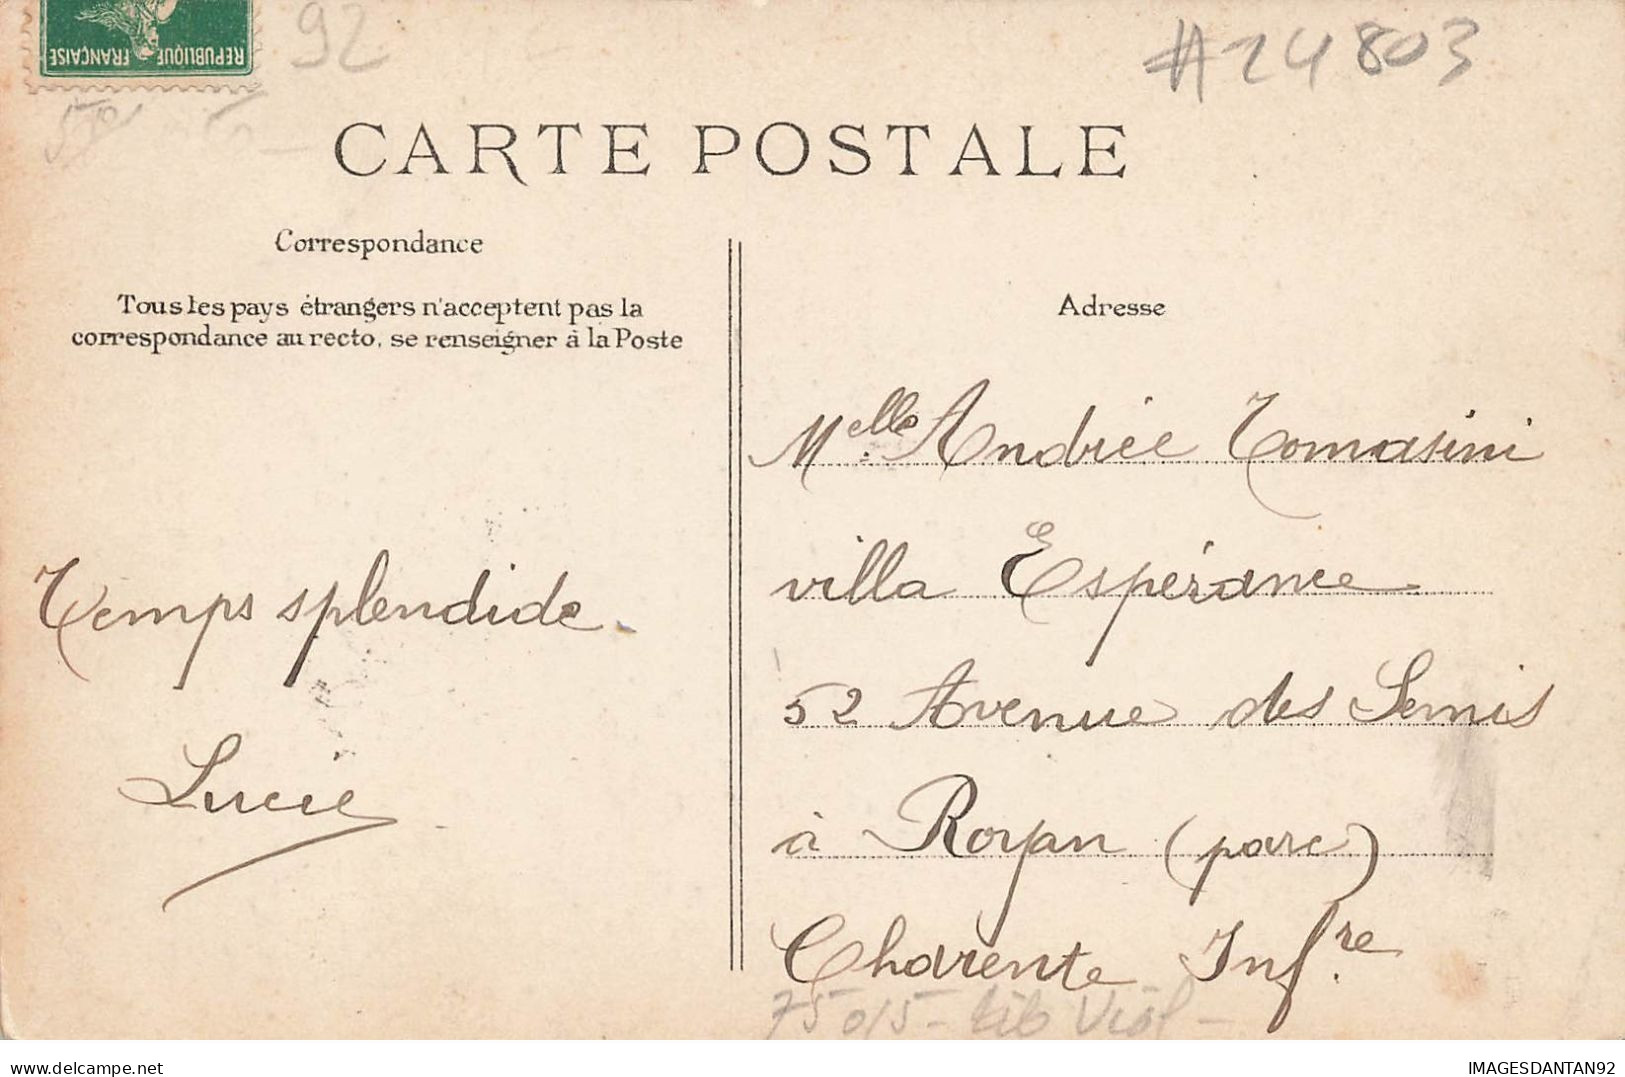 REPUBLIQUE FRANÇAISE
92
#24803
CARTE POSTALE
Correspondance
Tous les pays étrangers n'acceptent pas la
correspondance au recto, se renseigner à la Poste
Temps splendide.
Lucie
Adresse
Melle Andrée Tomasini
villa Espérance
52 Avenue des Semis
à Royan (parc)
Charente Infre
75015 -
delcampe.net
IMAGESDANTAN92